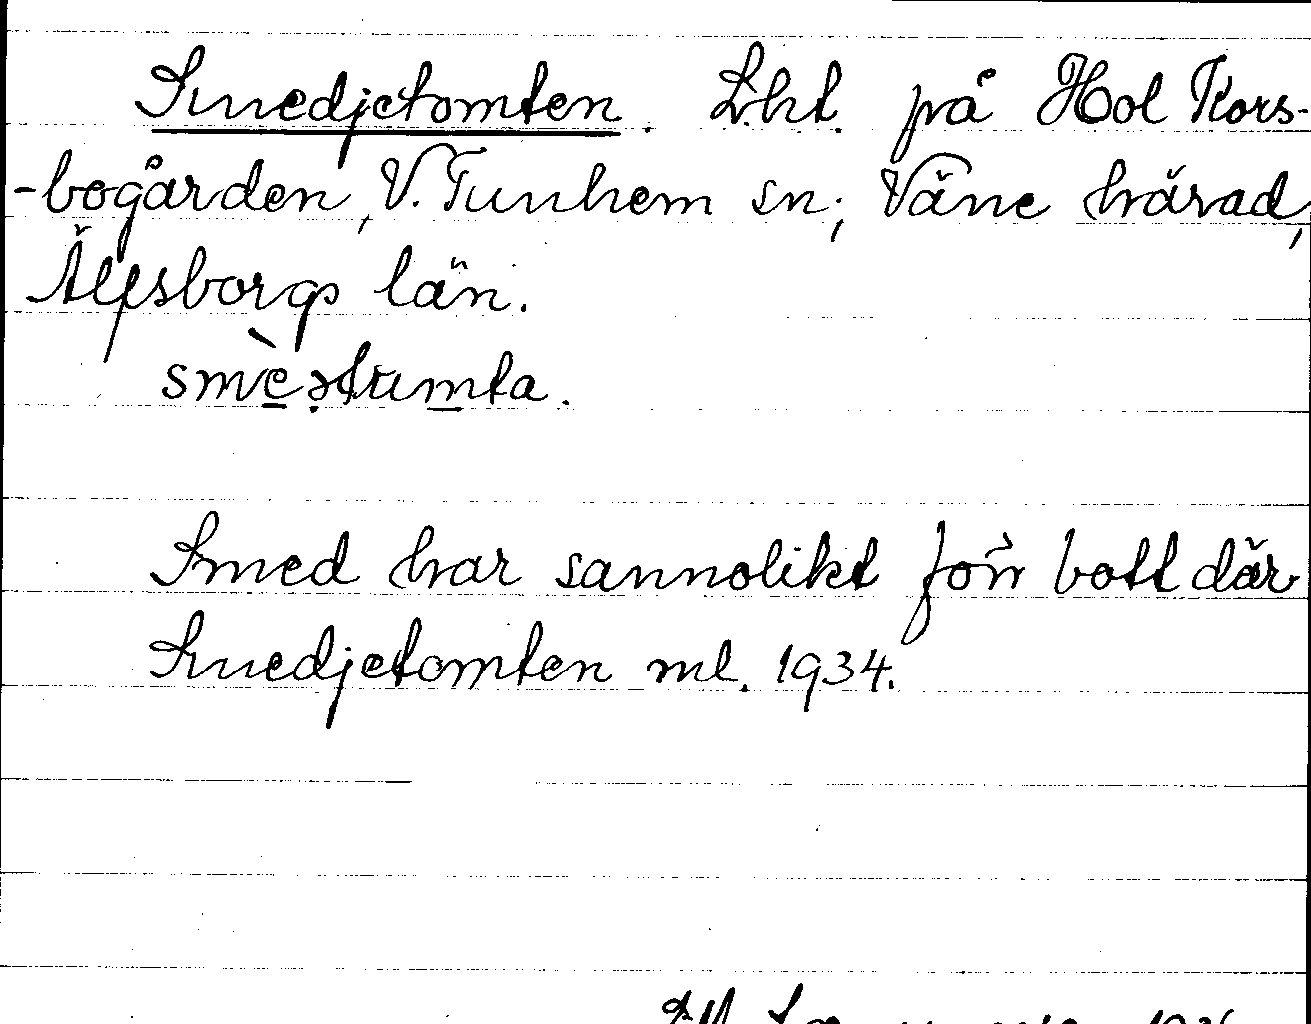 Smedjetomten. Lht. på Hol Kors-
-bogården, V. Tunhem sn; Väne härad,
Älfsborgs län.
smèẹtumta.
Smed har sannolikt förr bott där
Smedjetomten ml. 1934.